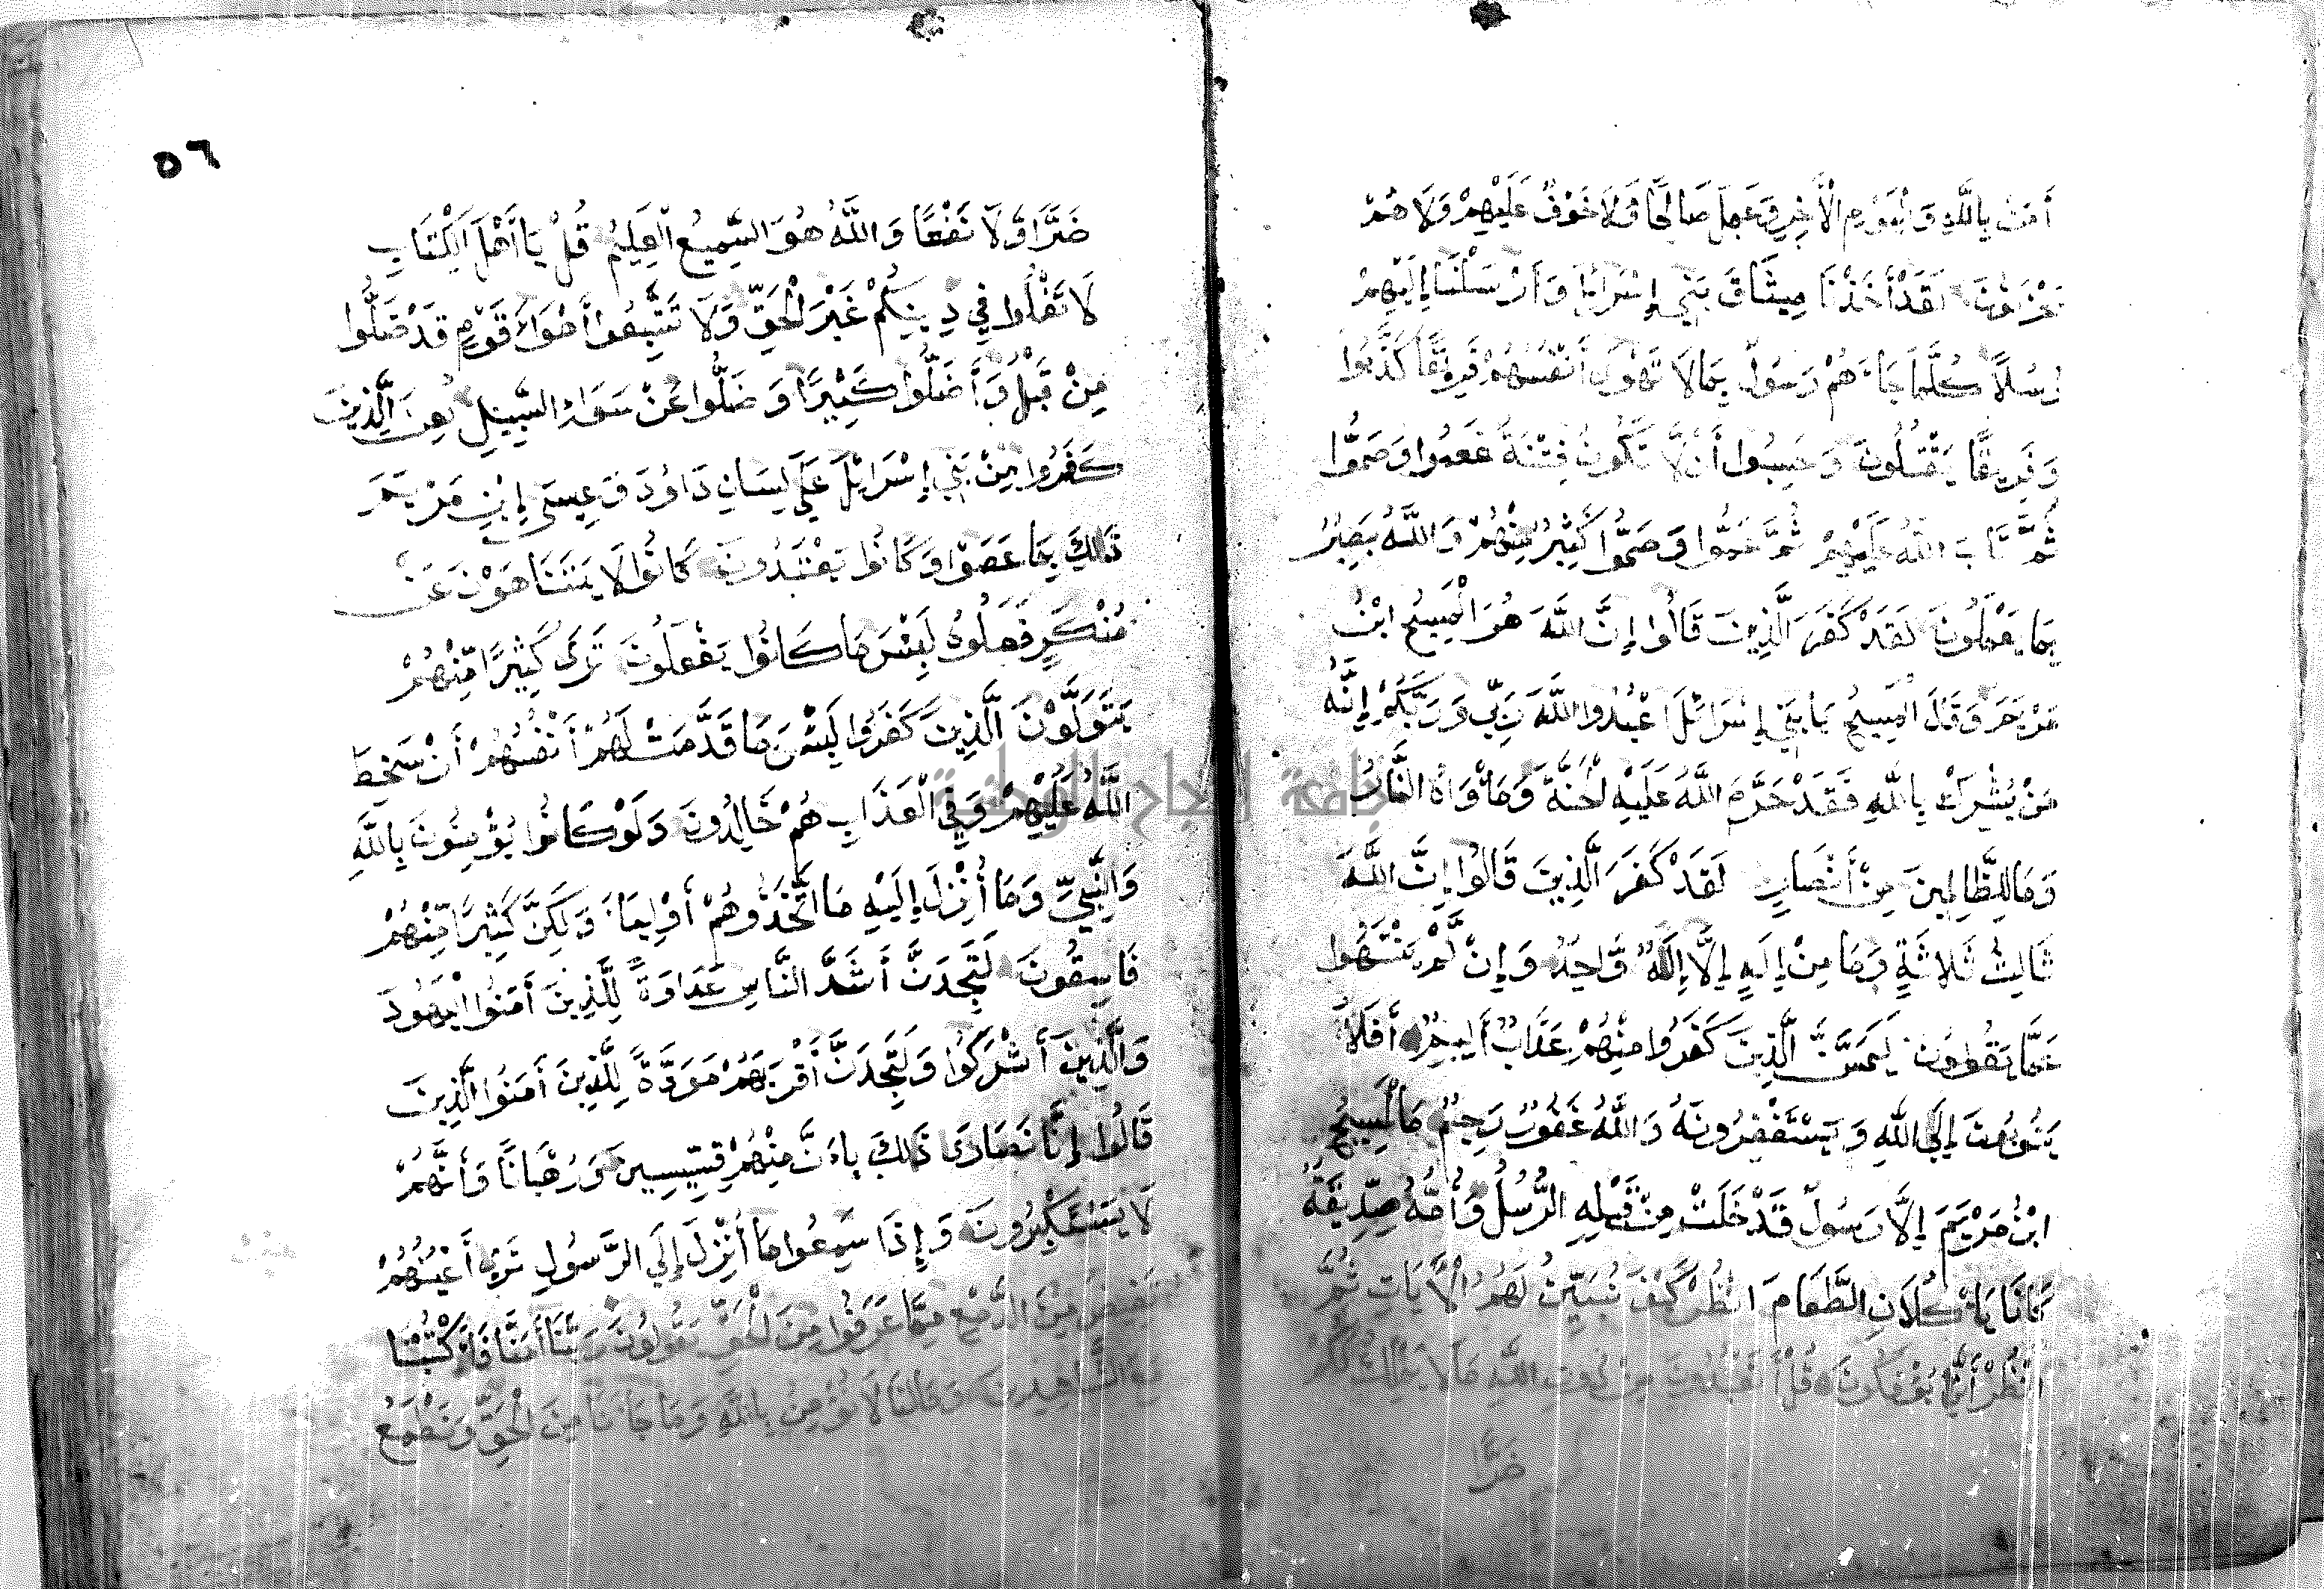 أَمَنَ بِاللَّهِ وَالْيَوْمِ الْأَخِرِ وَعَمِلَ صَالِحًا فَلَا خَوْفٌ عَلَيْهِمْ وَلَا هُمْ
يَحْزَنُونَ لَقَدْ أَخَذْنَا مِيثَاقَ بَنِي إِسْرَائِلَ وَأَرْسَلْنَا إِلَيْهِمْ
رُسُلًا كُلَّمَا جَاءَهُمْ رَسُولٌ بِمَا لَا تَهْوَى أَنْفُسُهُمْ فَرِيقًا كَذَّبُوا
وَفَرِيقًا يَقْتُلُونَ وَحَسِبُوا أَنْ لَّا تَكُونُ فِتْنَةٌ فَعَمُوا وَصَمُّوا
ثُمَّ تَابَ اللَّهُ عَلَيْهِمْ ثُمَّ عَمُّوا وَصَمُّوا كَثِيرٌ مِنْهُمْ وَاللَّهُ بَصِيرٌ
بِمَا يَعْمَلُونَ لَقَدْ كَفَرَ الَّذِينَ قَالُوا إِنَّ اللَّهَ هُوَ الْمَسِيحُ ابْنُ
مَرْيَمَ وَقَالَ الْمَسِيحُ يَا بَنِي إِسْرَائِلَ اعْبُدُوا اللَّهَ رَبِّي وَرَبَّكُمْ إِنَّهُ
مَنْ يُشْرِكْ بِاللَّهِ فَقَدْ حَرَّمَ اللَّهُ عَلَيْهِ الْجَنَّةَ وَمَأْوَاهُ النَّارُ
وَمَا لِلظَّالِمِينَ مِنْ أَنْصَارٍ لَقَدْ كَفَرَ الَّذِينَ قَالُوا إِنَّ اللَّهَ
ثَالِثُ ثَلَاثَةٍ وَمَا مِنْ إِلَهٍ إِلَّا إِلَهٌ وَّاحِدٌ وَإِنْ لَّمْ يَنْتَهُوا
عَمَّا يَقُولُونَ لَيَمَسَّنَّ الَّذِينَ كَفَرُوا مِنْهُمْ عَذَابٌ أَلِيمٌ أَفَلَا
يَتُوبُونَ إِلَى اللَّهِ وَيَسْتَغْفِرُونَهُ وَاللَّهُ غَفُورٌ رَحِيمٌ مَا الْمَسِيحُ
ابْنُ مَرْيَمَ إِلَّا رَسُولٌ قَدْ خَلَتْ مِنْ قَبْلِهِ الرُّسُلُ وَأُمُّهُ صِدِّيقَةٌ
كَانَا يَأْكُلَانِ الطَّعَامَ انْظُرْ كَيْفَ نُبَيِّنُ لَهُمُ الْأَيَاتِ ثُمَّ
انْظُرْ أَنَّى يُؤْفَكُونَ قُلْ أَتَعْبُدُونَ مِنْ دُونِ اللَّهِ مَا لَا يَمْلِكُ لَكُمْ
ضَرًّا
٥٦
ضَرًّا وَّلَا نَفْعًا وَاللَّهُ هُوَ السَّمِيعُ الْعَلِيمُ قُلْ يَا أَهْلَ الْكِتَابِ
لَا تَغْلُوا فِي دِينِكُمْ غَيْرَ الْحَقِّ وَلَا تَتَّبِعُوا أَهْوَاءَ قَوْمٍ قَدْ ضَلُّوا
مِنْ قَبْلُ وَأَضَلُّوا كَثِيرًا وَضَلُّوا عَنْ سَوَاءِ السَّبِيلِ لُعِنَ الَّذِينَ
كَفَرُوا مِنْ بَنِي إِسْرَائِلَ عَلَى لِسَانِ دَاوُدَ وَعِيسَى إِبْنِ مَرْيَمَ
ذَلِكَ بِمَا عَصَوْا وَكَانُوا يَعْتَدُونَ كَانُوا لَا يَتَنَاهَوْنَ عَنْ
مُنْكَرٍ فَعَلُوهُ لَبِئْسَ مَا كَانُوا يَفْعَلُونَ تَرَى كَثِيرًا مِّنْهُمْ
يَتَوَلَّوْنَ الَّذِينَ كَفَرُوا لَبِئْسَ مَا قَدَّمَتْ لَهُمْ أَنْفُسُهُمْ أَنْ سَخِطَ
اللَّهُ عَلَيْهِمْ وَفِي الْعَذَابِ هُمْ خَالِدُونَ وَلَوْ كَانُوا يُؤْمِنُونَ بِاللَّهِ
وَالنَّبِيِّ وَمَا أُنْزِلَ إِلَيْهِ مَا اتَّخَذُوهُمْ أَوْلِيَاءَ وَلَكِنَّ كَثِيرًا مِّنْهُمْ
فَاسِقُونَ لَتَجِدَنَّ أَشَدَّ النَّاسِ عَدَاوَةً لِلَّذِينَ أَمَنُوا الْيَهُودَ
وَالَّذِينَ أَشْرَكُوا وَلَتَجِدَنَّ أَقْرَبَهُمْ مَوَدَّةً لِلَّذِينَ أَمَنُوا الَّذِينَ
قَالُوا إِنَّا نَصَارَى ذَلِكَ بِاَنَّ مِنْهُمْ قِسِّيسِينَ وَرُهْبَانًا وَأَنَّهُمْ
لَا يَسْتَكْبِرُونَ وَإِذَا سَمِعُوا مَا أُنْزِلَ إِلَى الرَّسُولِ تَرَى أَعْيُنَهُمْ
تَفِيضُ مِنَ الدَّمْعِ مِمَّا عَرَفُوا مِنَ الْحَقِّ يَقُولُونَ رَبَّنَا أَمَنَّا فَاكْتُبْنَا
مَعَ الشَّاهِدِينَ وَمَا لَنَا لَا نُؤْمِنُ بِاللَّهِ وَمَا جَاءَنَا مِنَ الْحَقِّ وَنَطْمَعُ
جامعة النجاح الوطنية